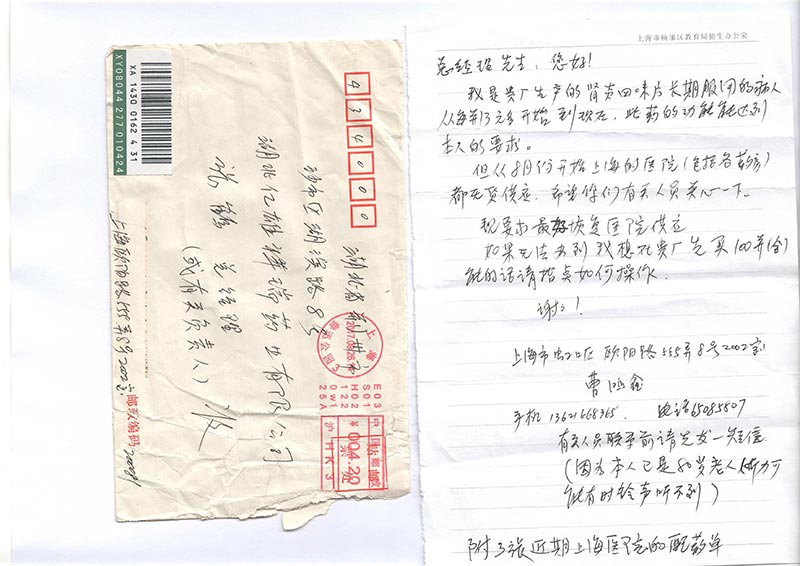 XA 1430 0162 4 31
XY08044 277 010424
434000
湖北省荆州市
沙市区湖滨路8号
湖北亿雄祥瑞药业有限公司
总经理
(或有关负责人) 收
上海欧阳路555弄8号2002室
邮政编码 200081
上海
2017.09.26
E03
S01
H02
122
0w1
25A
中国邮政
¥004.20
沪HK3
上海市杨浦区教育局招生办公室
总经理先生:您好!
我是贵厂生产的肾炎四味片长期服用的病人
从每并13元多开始到现在,此药的功能能达到
本人的要求。
但从8月份开始上海的医院(包括各药房)
都无货供应,希望你们有关人员关心一下。
现要求最好恢复医院供应
如果无法办到我想在贵厂先买100并(盒)
能的话请指点如何操作.
谢谢!
上海市虹口区欧阳路555弄8号2002室
曹鸿鑫
手机 13621668365. 电话65085807
有关人员联系前请先发一短信
(因为本人已是80岁老人听力可
能有时铃声听不到)
附3张近期上海医院的配药单